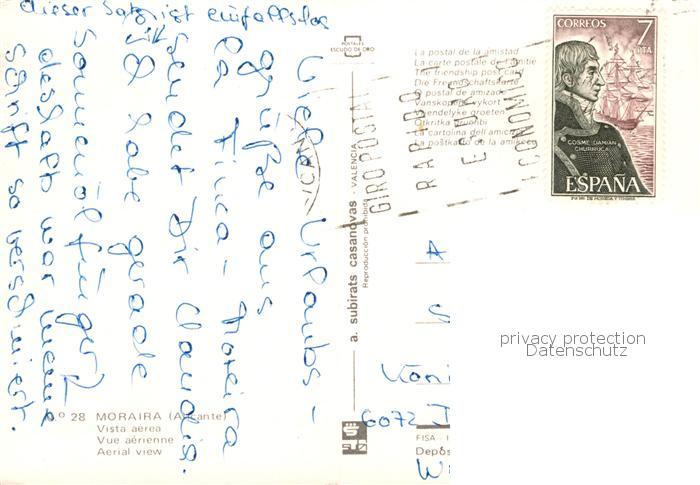 dieser Satz ist einfallslos
Viele Urlaubs-
grüße aus
La Finca - Moreira
sendet Dir Claudia.
Ich habe gerade
Sonnenölfinger
deshalb war meine
Schrift so verschmiert.
Nº 28 MORAIRA (Alicante)
Vista aérea
Vue aérienne
Aerial view
POSTALES
ESCUDO DE ORO
a. subirats casanovas - VALENCIA
Reproducción prohibida
La postal de la amistad
La carte postale de l'amitié
The friendship post card
Die Freundschaftskarte
O postal de amizade
Vanskopens vykort
Otkritka druzhbi
La cartolina dell'amicizia
GIRO POSTAL
RAPIDO
ECONOMI
CORREOS 7
PTA
COSME DAMIAN
CHURRUCA
ESPAÑA
A
S
6072
W
FISA - I
Depós
privacy protection
Datenschutz